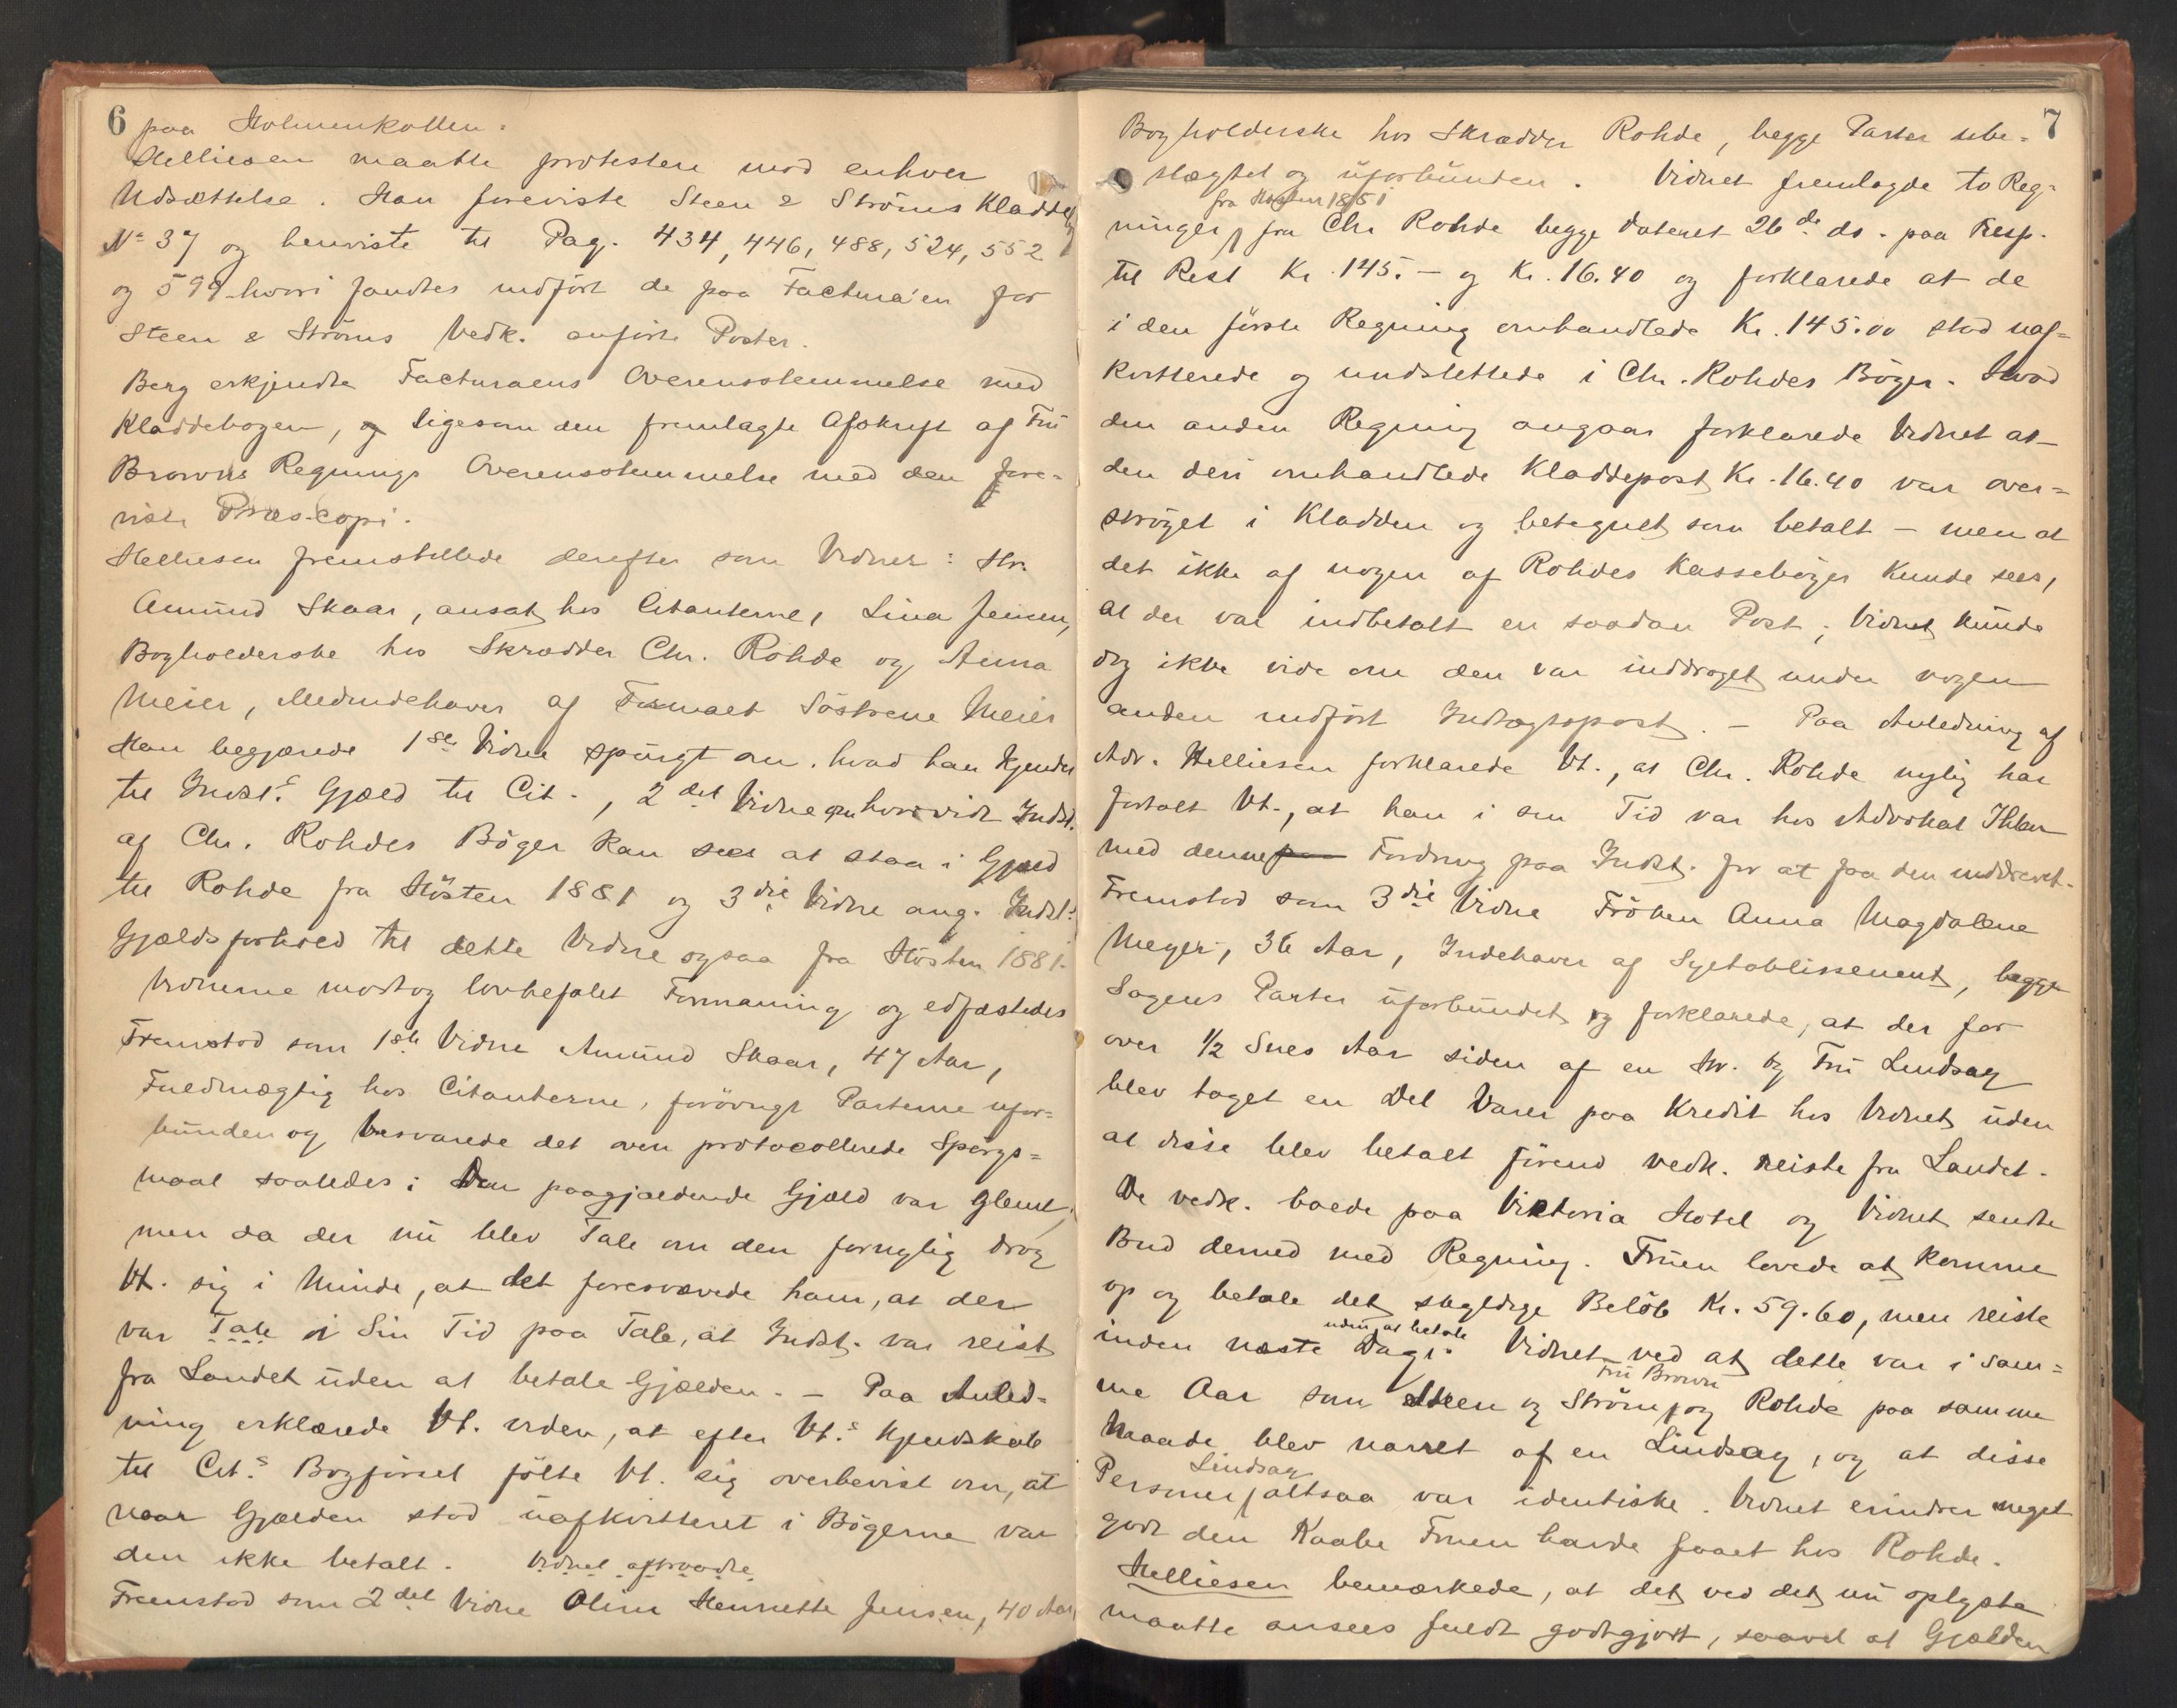 6 paa Holmenkollen.
Helliesen maatte protestere mod enhver
Udsættelse. Han foreviste Steen & Ströms Kladdebog
No 37 og henviste til Pag. 434, 446, 488, 524, 552
og 599 hvori fandtes indfört de paa Factura'en for
Steen & Ströms Vedk. anförte Poster.
Berg erkjendte Facturaens Overensstemmelse med
Kladdebogen, og ligesom den fremlagte Afskrift af Fru
Browns Regnings Overensstemmelse med den fore-
viste Pressecopi.
Helliesen fremstillede derefter som Vidner: Hr.
Amund Skaar, ansat hos Citanterne, Lina Jensen,
Bogholderske hos Skrædder Chr. Rohde og Anna
Meier, Medindehaver af Firmaet Söstrene Meier
Han begjærede 1ste Vidne spurgt om hvad han kjender
til Indst.s Gjæld til Cit., 2det Vidne om hvorvidt Indst.
af Chr. Rohdes Böger kan sees at staa i Gjæld
til Rohde fra Hösten 1881 og 3die Vidne ang. Indst.s
Gjældsforhold til dette Vidne ogsaa fra Hösten 1881.
Vidnerne modtog lovbefalet Formaning og edfæstedes
Fremstod som 1ste Vidne Amund Skaar, 47 Aar,
Fuldmægtig hos Citanterne, forövrigt Parterne ufor-
bunden og besvarede det oven protocollerede Spörgs-
maal saaledes: Den paagjældende Gjæld var glemt,
men da der nu blev Tale om den fornylig drog
Vt. sig i Minde, at det foresvævede ham, at der
var Tale i Sin Tid paa Tale, at Indst. var reist
fra Landet uden at betale Gjælden. – Paa Anled-
ning erklærede Vt. viden, at efter Vt.s Kjendskab
til Cit.s Bogförsel fölte Vt. sig overbevist om, at
naar Gjælden stod uafkvitteret i Bögerne var
den ikke betalt. Vidnet aftraadte
Fremstod som 2det Vidne Oline Henriette Jensen, 40 Aar
7
Bogholderske hos Skrædder Rohde, begge Parter ube-
slægtet og uforbunden. Vidnet fremlagde to Reg-
fra Hösten 1881
ninger fra Chr Rohde begge dateret 26de ds. paa Resp.
til Rest Kr. 145.– og Kr. 16.40 og forklarede at de
i den förste Regning omhandlede Kr. 145.00 stod uaf-
kvitterede og undslettede i Chr. Rohdes Böger. Hvad
den anden Regning angaar forklarede Vidnet at
den deri omhandlede Kladdepost Kr. 16.40 var over-
ströget i Kladden og betegnet som betalt – men at
det ikke af nogen af Rohdes Kasseböger kunde sees,
at der var indbetalt en saadan Post; Vidnet kunde
dog ikke vide om den var inddraget under nogen
anden indfört Indtægtspost. – Paa Anledning af
Adv. Helliesen forklarede Vt., at Chr. Rohde nylig har
fortalt Vt., at han i sin Tid var hos Advokat Ihlen
med denne Fordring paa Indst. for at faa den inddrevet.
Fremstod som 3die Vidne Fröken Anna Magdalene
Meyer, 36 Aar, Indehaver af Syetablissement, begge
Sagens Parter uforbundet og forklarede, at der for
over 1/2 Snes Aar siden af en Hr. og Fru Lindsay
blev taget en Del Varer paa Kredit hos Vidnet uden
at disse blev betalt förend vedk. reiste fra Landet.
De vedk. boede paa Viktoria Hotel og Vidnet sendte
Bud derned med Regning. Fruen lovede at komme
op og betale det skyldige Belöb Kr. 59.60, men reiste
uden at betale
inden næste Dag. Vidnet ved at dette var i sam-
Fru Brown
me Aar som Steen og Ström, og Rohde paa samme
Maade blev narret af en Lindsay, og at disse
Lindsay
Personer altsaa var identiske. Vidnet erindrer meget
godt den Kaabe Fruen havde faaet hos Rohde.
Helliesen bemærkede, at det ved det nu oplyste
maatte ansees fuldt godtgjort, saavel at Gjælden